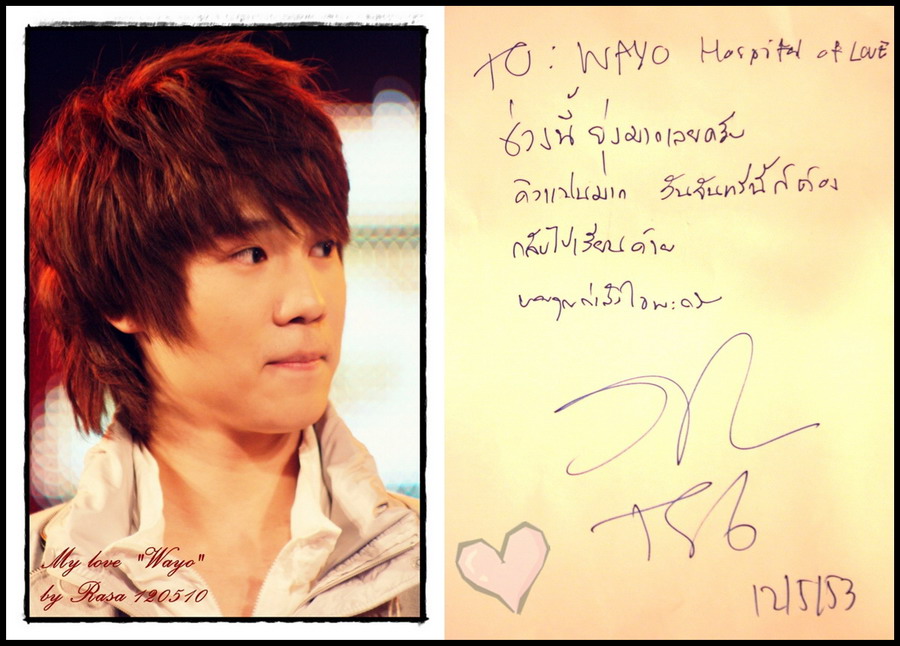 My love "Wayo"
by Rasa 120510
TO: WAYO Hospital of LOVE
ช่วงนี้ ยุ่งมากเลยครับ
คิวแน่นมาก วันจันทร์นี้ก็ต้อง
กลับไปเรียนด้วย
ขอบคุณกำลังใจนะครับ
TS6
12/5/53